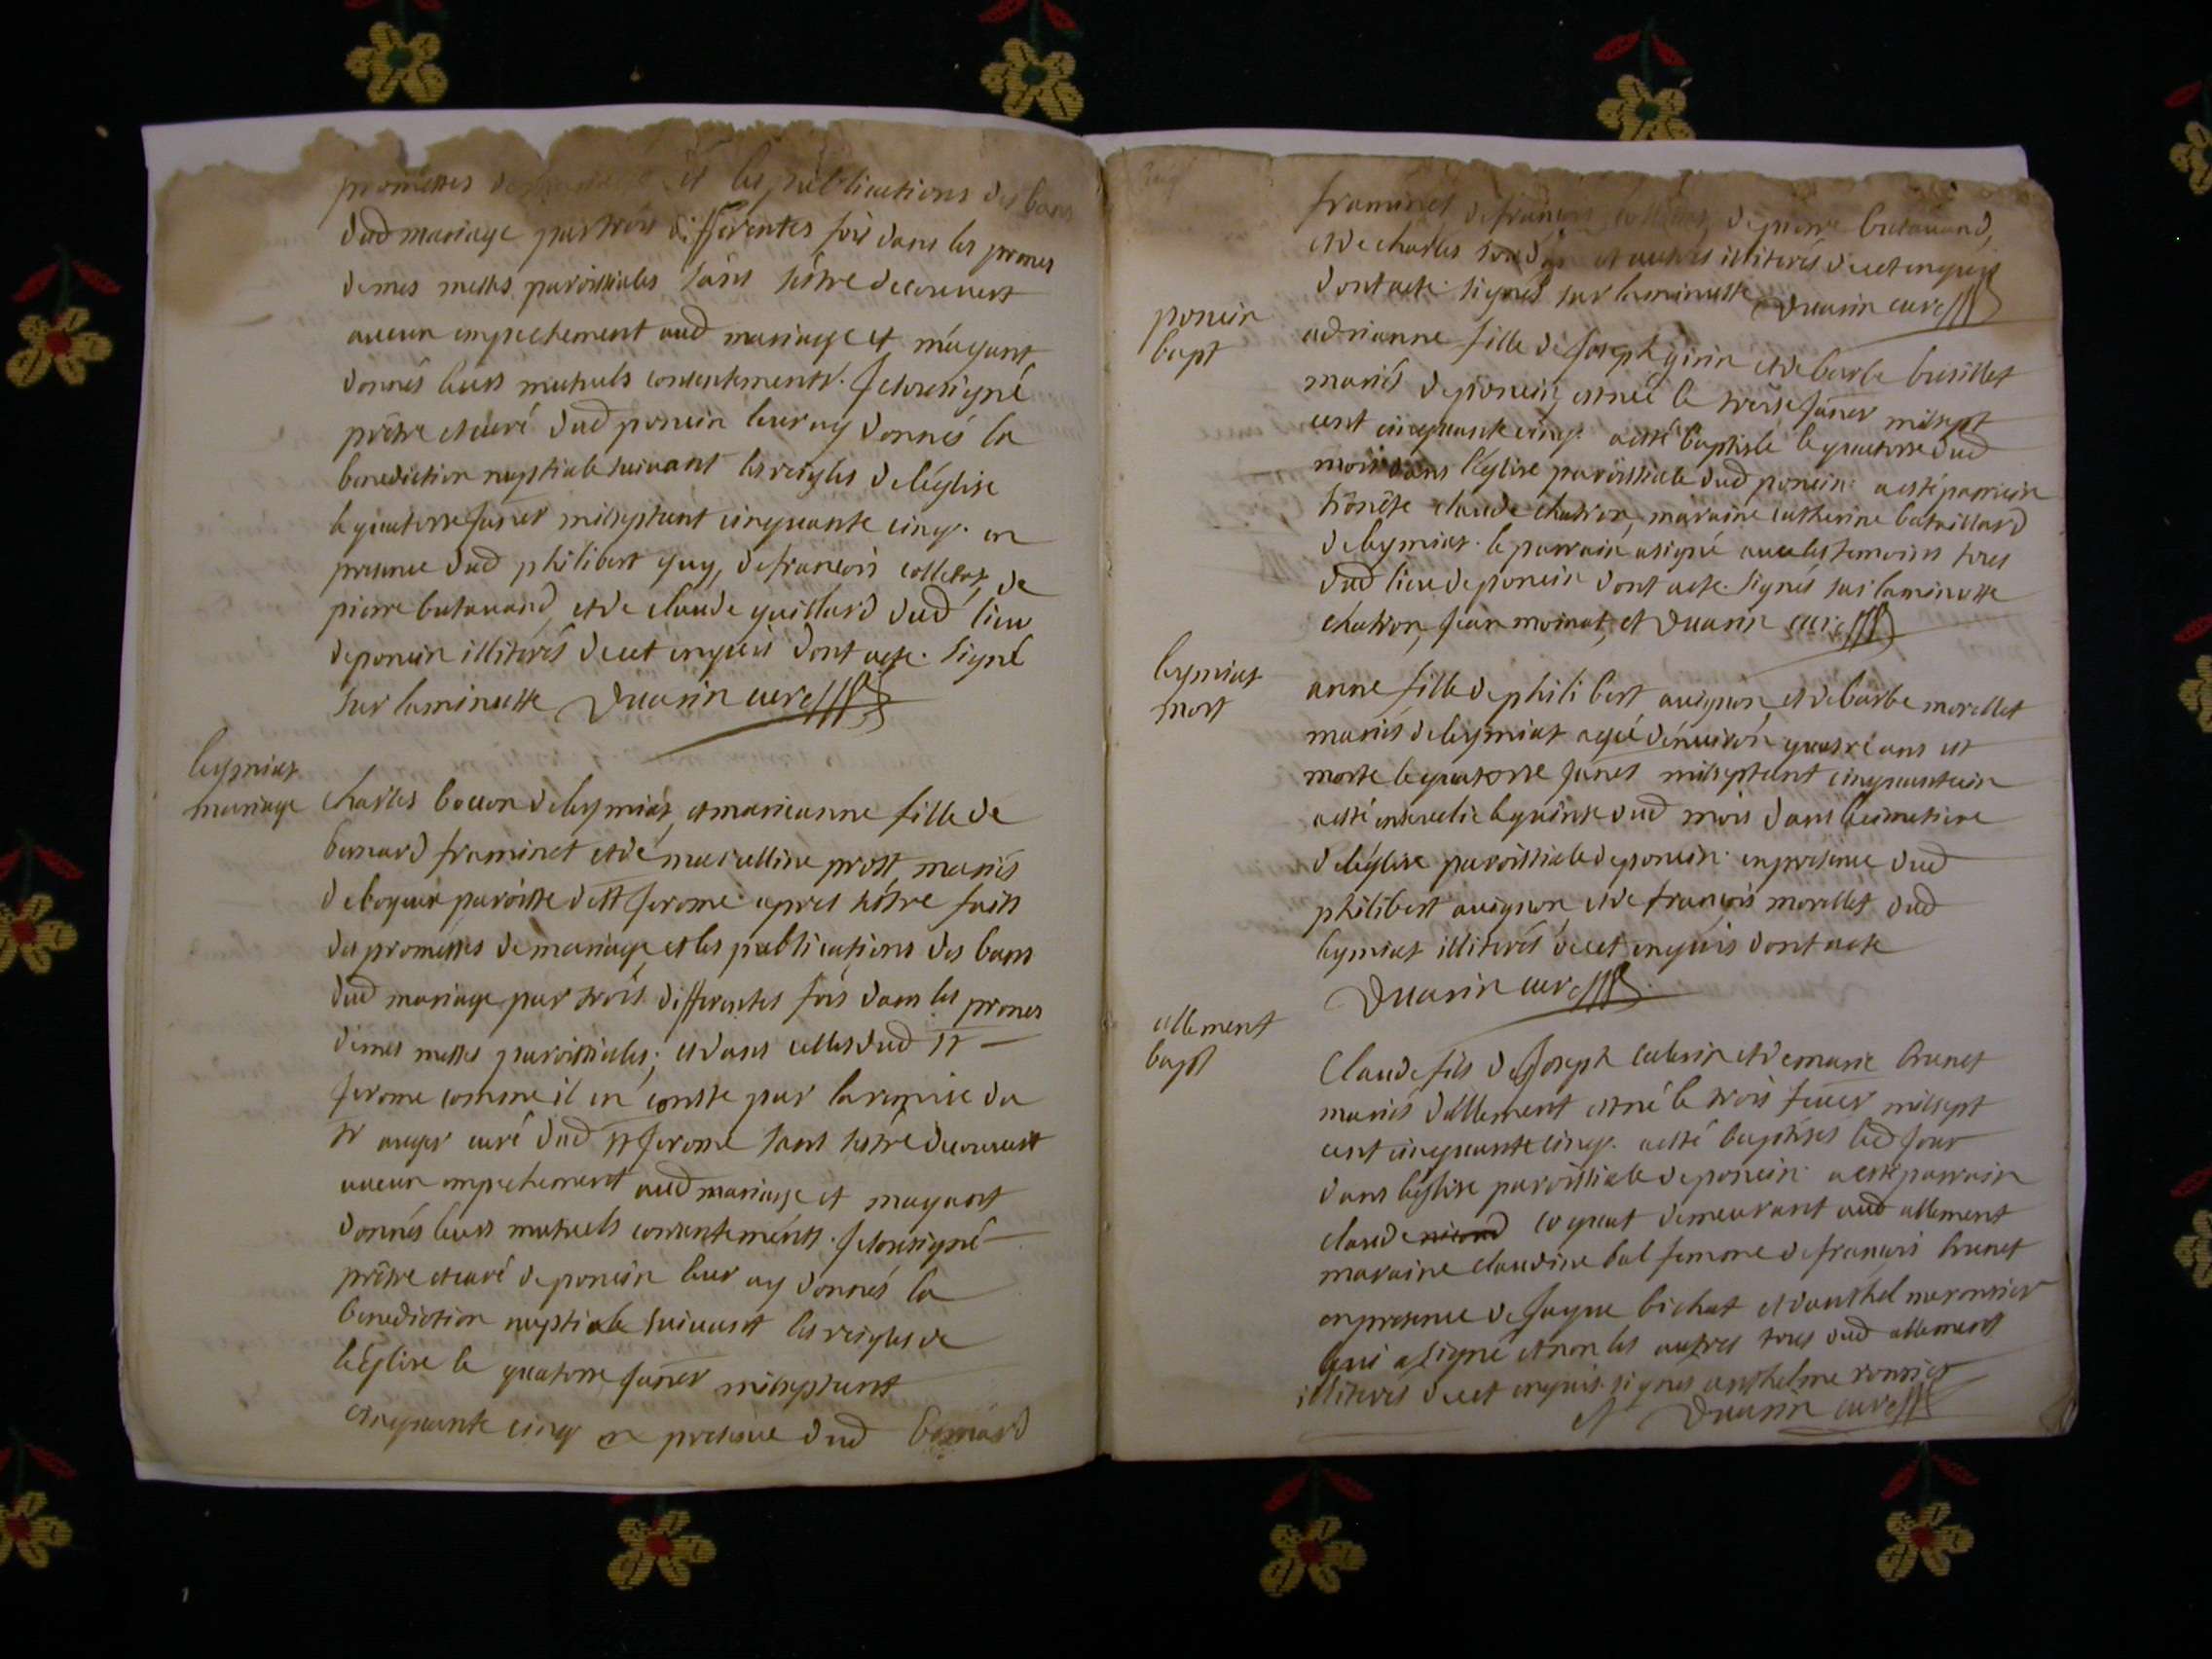 promesses de mariage et les publications des bans
dud mariage par trois differentes fois dans les prones
de mes messes paroissiales sans s'être decouvert
aucun empechement aud mariage et m'ayant
donnés leurs mutuels consentements. Je soussigné
prêtre et curé dud poncin leur ay donnés la
benediction nuptiale suivant les reigles de l'église
le quatorse janer milseptcent cinquante cinq. en
presence dud philibert guy, de francois colletat, de
pierre butavand, et de claude guillard dud lieu
de poncin illiterés de cet enquis dont acte. signé
sur la minutte Duarin curé
leymiat
mariage
charles bocon de leymiat, et marieanne fille de
bernard framinet et de marcelline prost, mariés
de boyeux paroisse de st jerome apres s'être faits
des promesses de mariage et les publications des bans
dud mariage par trois differentes fois dans les prones
de mes messes paroissiales; et dans celles dud st
jerome comme il en conste par la remise du
sr auger curé dud st jerome sans s'être decouvert
aucun empechement aud mariage et mayant
donnés leurs mutuels consentements. je soussigné
prêtre et curé de poncin leur ay donnés la
benediction nuptiale suivant les reigles de
l'église le quatorse janer milseptcent
cinquante cinq en presence dud bernard
framinet de francois colletat, de pierre butavand,
et de charles et autres illiterés de cet enquis
dont acte. signés sur la minutte Duarin curé
poncin
bapt
adrianne fille de joseph girin et de barbe brisillet
mariés de poncin, est née le treise janer milsept
cent cinquante cinq. a esté baptisée le quatorse dud
mois dans l'église paroissiale dud poncin. a esté parrein
honête claude chatron, maraine catherine bataillard
de leymiat. le parrain a signé avec les temoins tous
dud lieu de poncin dont acte. signés sur la minutte
chatron, jean moinat, et Duarin curé
leymiat
mort
anne fille de philibert avignon, et de barbe morellet
mariés de leymiat agée d'environ quatre ans est
morte le quatorse janer milseptcent cinquantecin
a esté ensevelie le quinse dud mois dans le cimetiere
de l'église paroissiale de poncin. en presence dud
philibert avignon, et de françois morellet dud
leymiat illiterés de cet enquis dont acte
Duarin curé
allement
bapt
Claude fils de joseph caterin et de marie brunet
mariés d'allement est né le trois fevrer milsept
cent cinquante cinq. a esté baptisés led jour
dans l'église paroissiale de poncin. a esté parrain
claude coquat demeurant aud allement
maraine claudine bal femme de francois brunet
en presence de jaque bichat et d'anthelme ronsier
qui a signé et non les autres tous dud allement
illiterés de cet enquis. signés anthelme ronsier
et Duarin curé